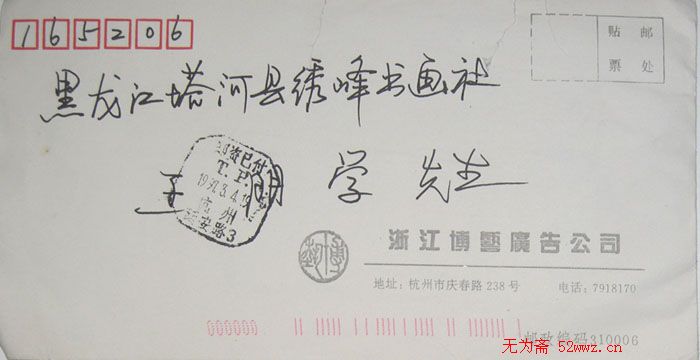 165206
贴 邮
票 处
黑龙江塔河县绣峰书画社
王 学 先生
邮资已付
T. P.
杭州
延安路3
浙江博藝廣告公司
地址：杭州市庆春路238号 电话：7918170
000000
邮政编码310006
无为斋 52wwz.cn